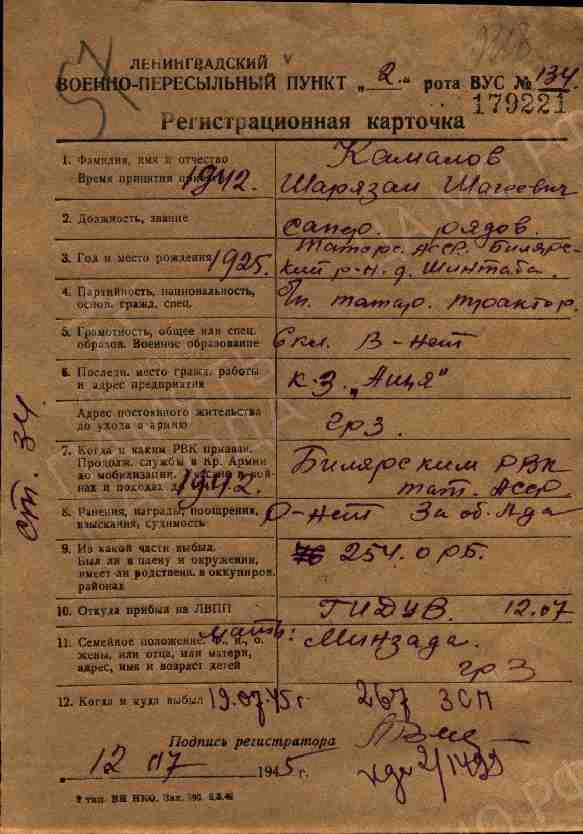 57
ЛЕНИНГРАДСКИЙ
ВОЕННО-ПЕРЕСЫЛЬНЫЙ ПУНКТ „2.“ рота ВУС № 134.
179221
Регистрационная карточка
1. Фамилия, имя и отчество Камалов
Время принятия 1942. Шарязан Шагеевич
2. Должность, звание сапер. рядов.
3. Год и место рождения 1925. Татарс. АССР. Билярс-
кий р-н. д. Шинтаба.
4. Партийность, национальность,
основ. гражд. спец. татар. трактор.
5. Грамотность, общее или спец.
образов. Военное образование 6 кл. В-нет
6. Последн. место гражд. работы
и адрес предприятия к-з.
Адрес постоянного жительства
до ухода в армию гр 3.
7. Когда и каким РВК призван. Билярским РВК
Продолж. службы в Кр. Армии тат. АССР.
до мобилизации.
нах и походах 1942.
8. Ранения, награды, поощрения,
взыскания, судимость Р-нет За об. Л-да
9. Из какой части выбыл. 254. ОРБ.
Был ли в плену и окружении,
имеет ли родственн. в оккупиров.
районах
10. Откуда прибыл на ЛВПП ГИДУВ. 12.07
11. Семейное положение. Ф., и., о. мать: Минзада.
жены, или отца, или матери,
адрес, имя и возраст детей гр 3
12. Когда и куда выбыл 19.07.45 г 267 ЗСП
Подпись регистратора
12 07 1945 г.
2 тип. ВИ НКО. Зак.
ст. 34